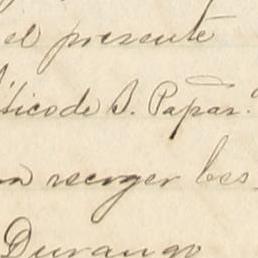 el presente
ticode S. Papas.
n recoger los
Durango